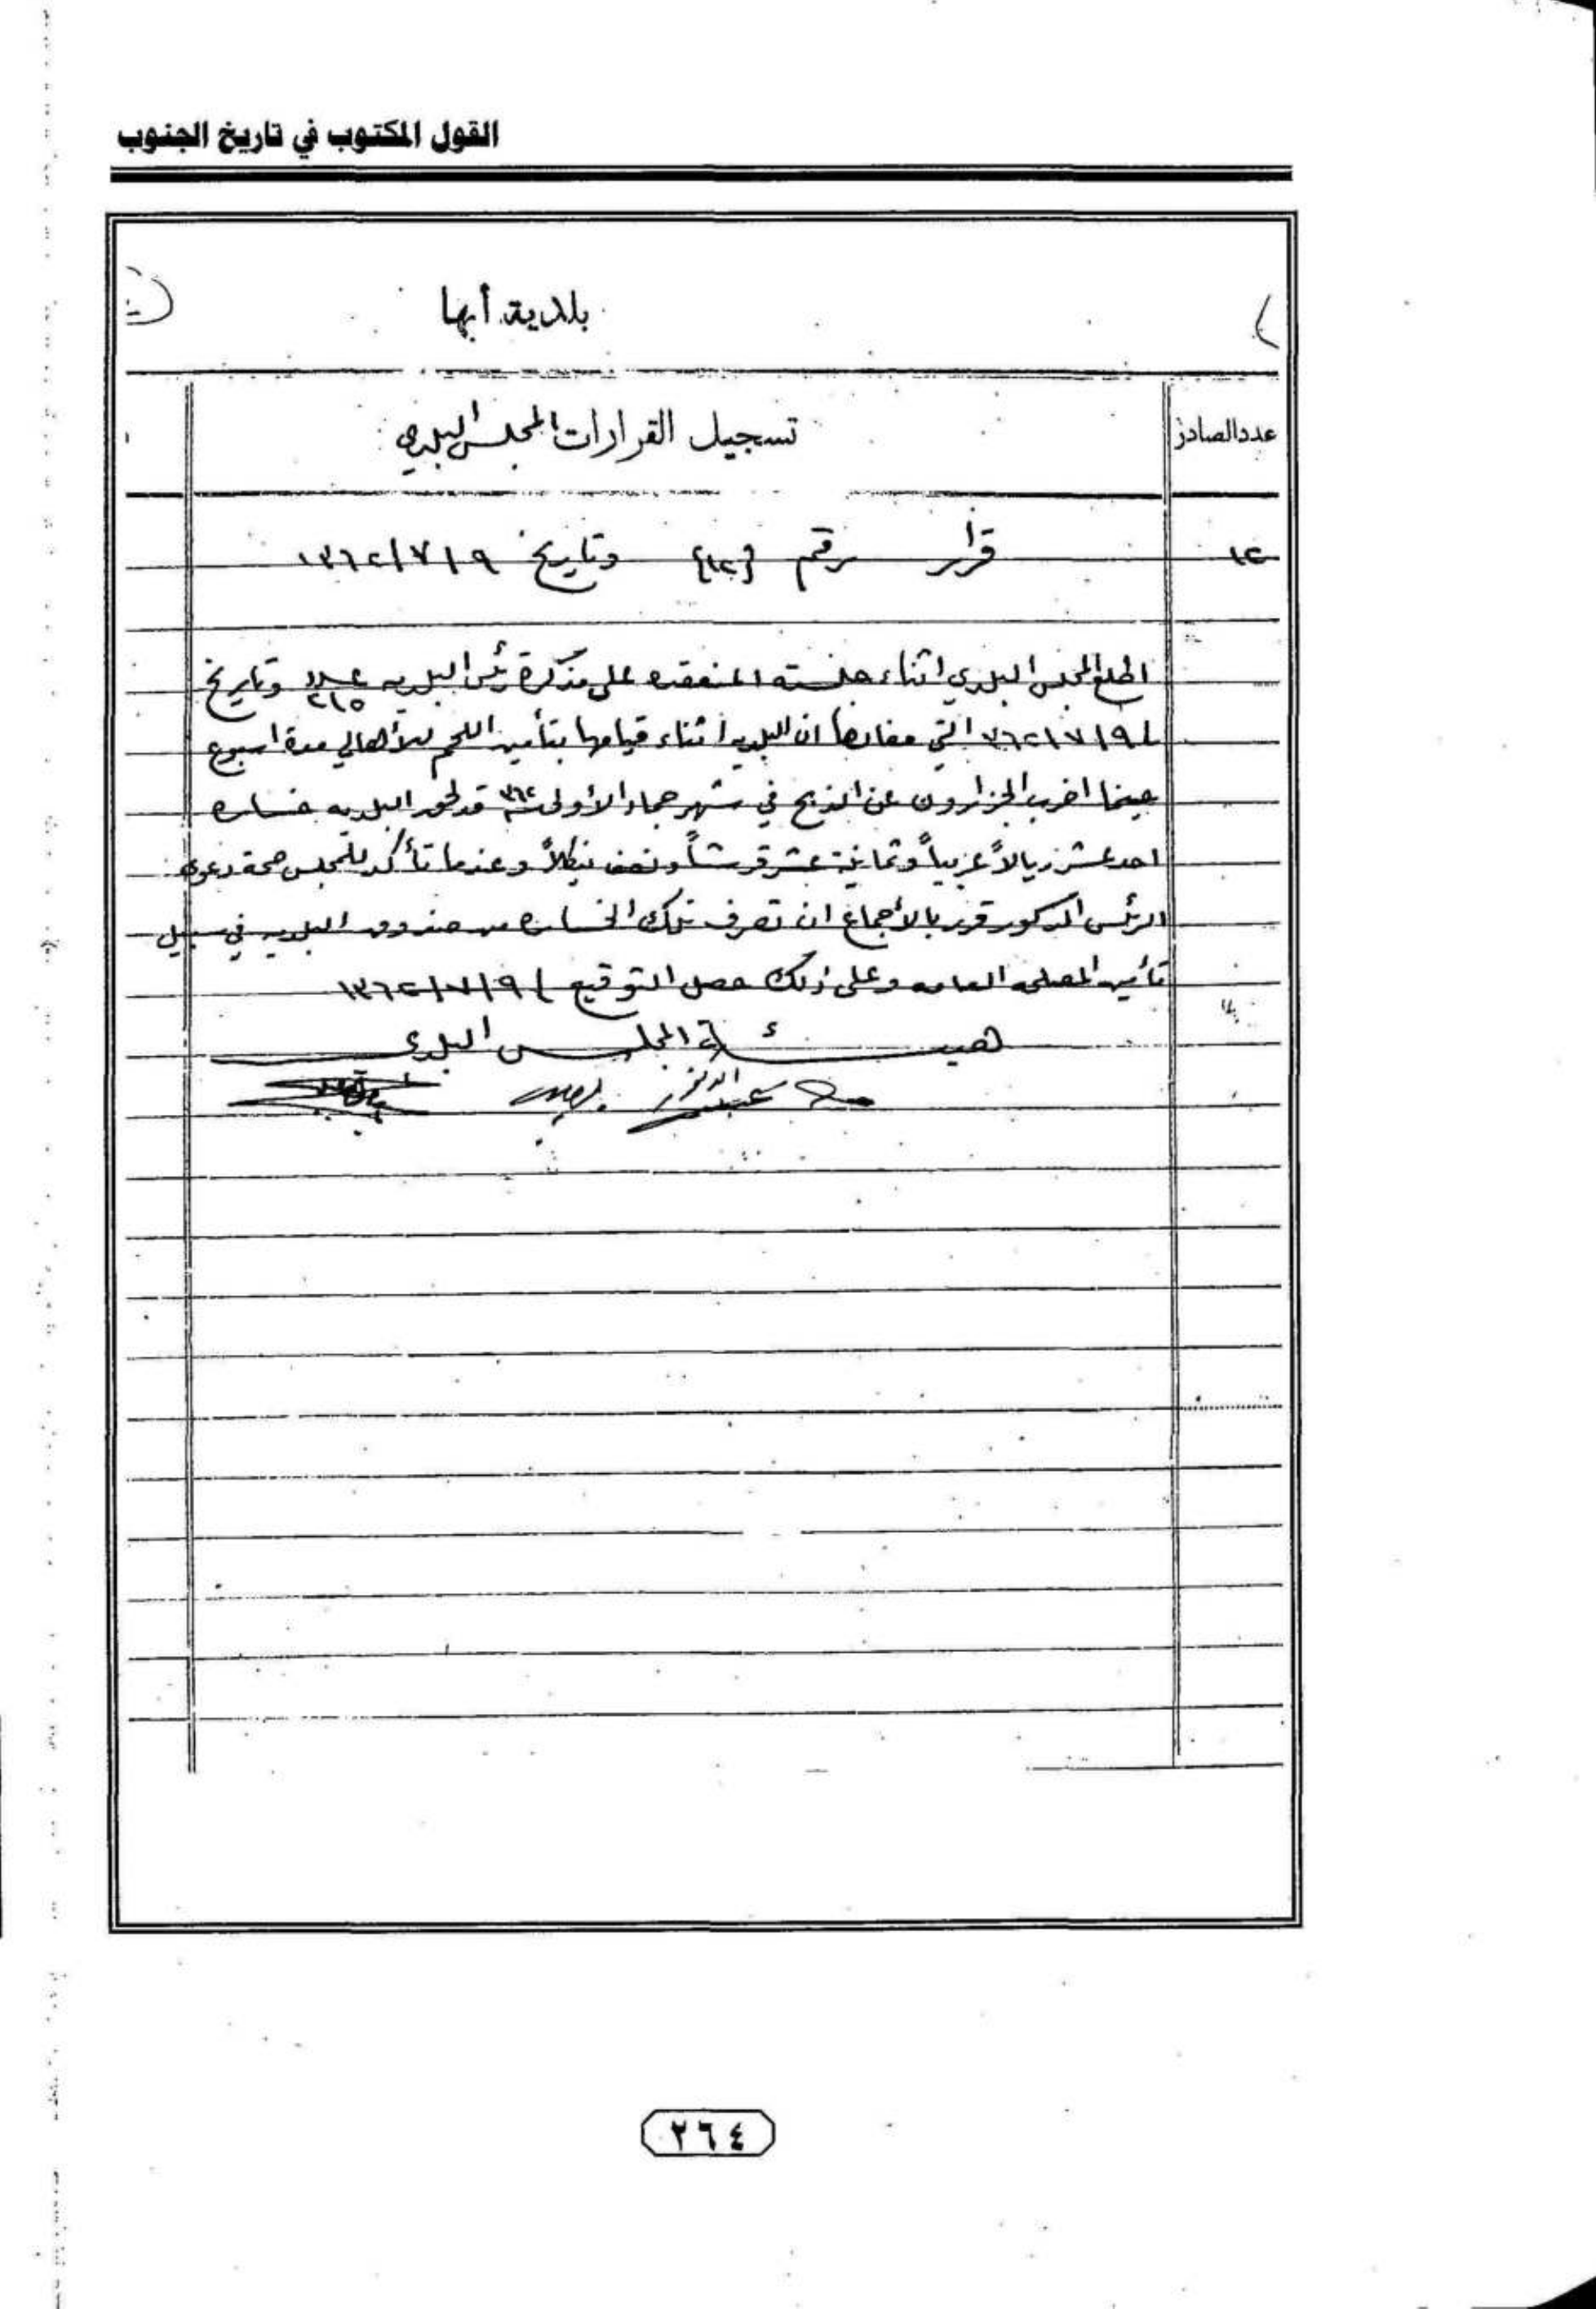 القول المكتوب في تاريخ الجنوب
بلدية أبها
عدد الصادر
تسجيل القرارات المجلس البلدي
١٢
قرار رقم (١٢) وتاريخ ١٣٦٢/٧/٩
اطلع المجلس البلدي اثناء جلسته المنعقده على مذكرة رئيس البلديه عدد ٢١٥ وتاريخ
٣٦٢/٧/٩ التي مفادها ان البلديه اثناء قيامها بتأمين اللحم للأهالي مدة اسبوع
حينما اضرب الجزارون عن الذبح في شهر جماد الأولى ٣٦٢ قد لحق البلديه خساره
احد عشر ريالاً عربياً وثمانية عشر قرشاً ونصف وعندما تأكد للمجلس صحة دعوى
الرئس المذكور قرر بالأجماع ان تصرف تلك الخساره من صندوق البلديه في سبيل
تأمين المصلحه العامه وعلى ذلك حصل التوقيع ١٣٦٢/٧/٩
هيئة المجلس البلدي
٢٦٤